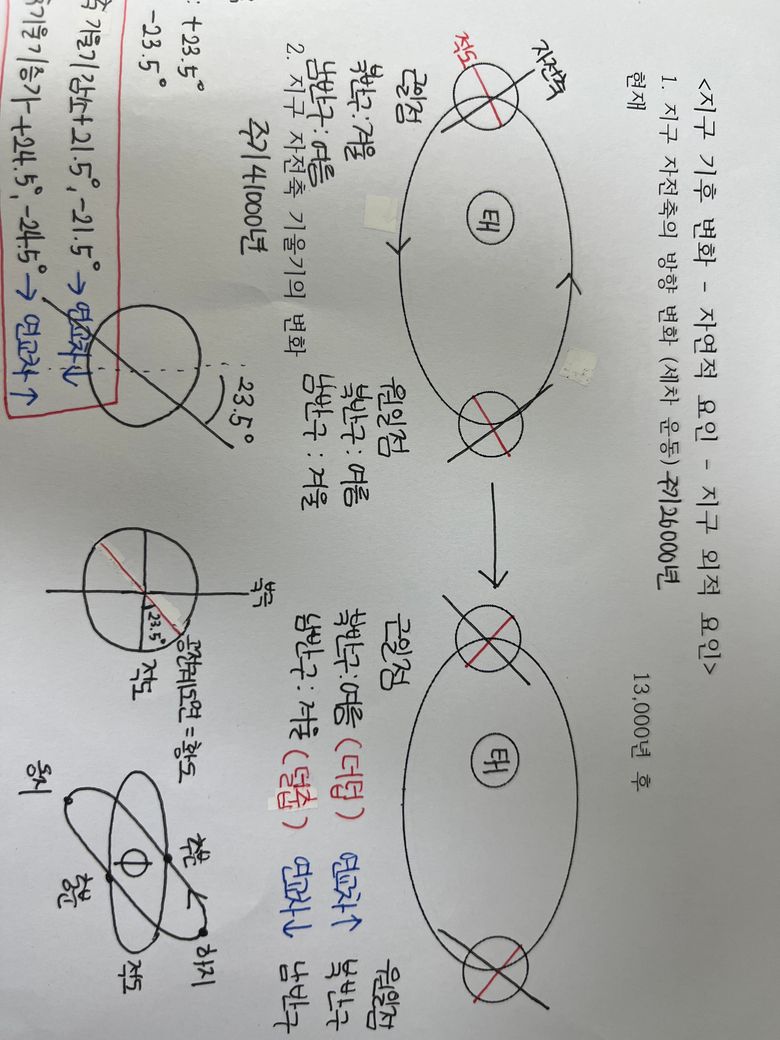 <지구 기후 변화 - 자연적 요인 - 지구 외적 요인>
1. 지구 자전축의 방향 변화 (세차 운동) 주기 26000년
현재
13,000년 후
자전축
적도
태
태
근일점
북반구: 겨울
남반구: 여름
원일점
북반구: 여름
남반구: 겨울
근일점
북반구: 여름 (더덥) 연교차↑
남반구: 겨울 (덜춥) 연교차↓
원일점
북반구
남반구
2. 지구 자전축 기울기의 변화
주기 41000년
: +23.5°
-23.5°
축 기울기 감소 +21.5°, -21.5° → 연교차↓
기울기 증가 +24.5°, -24.5° → 연교차↑
23.5°
북극
23.5°
적도
공전궤도면 = 황도
동지
추분
춘분
하지
적도